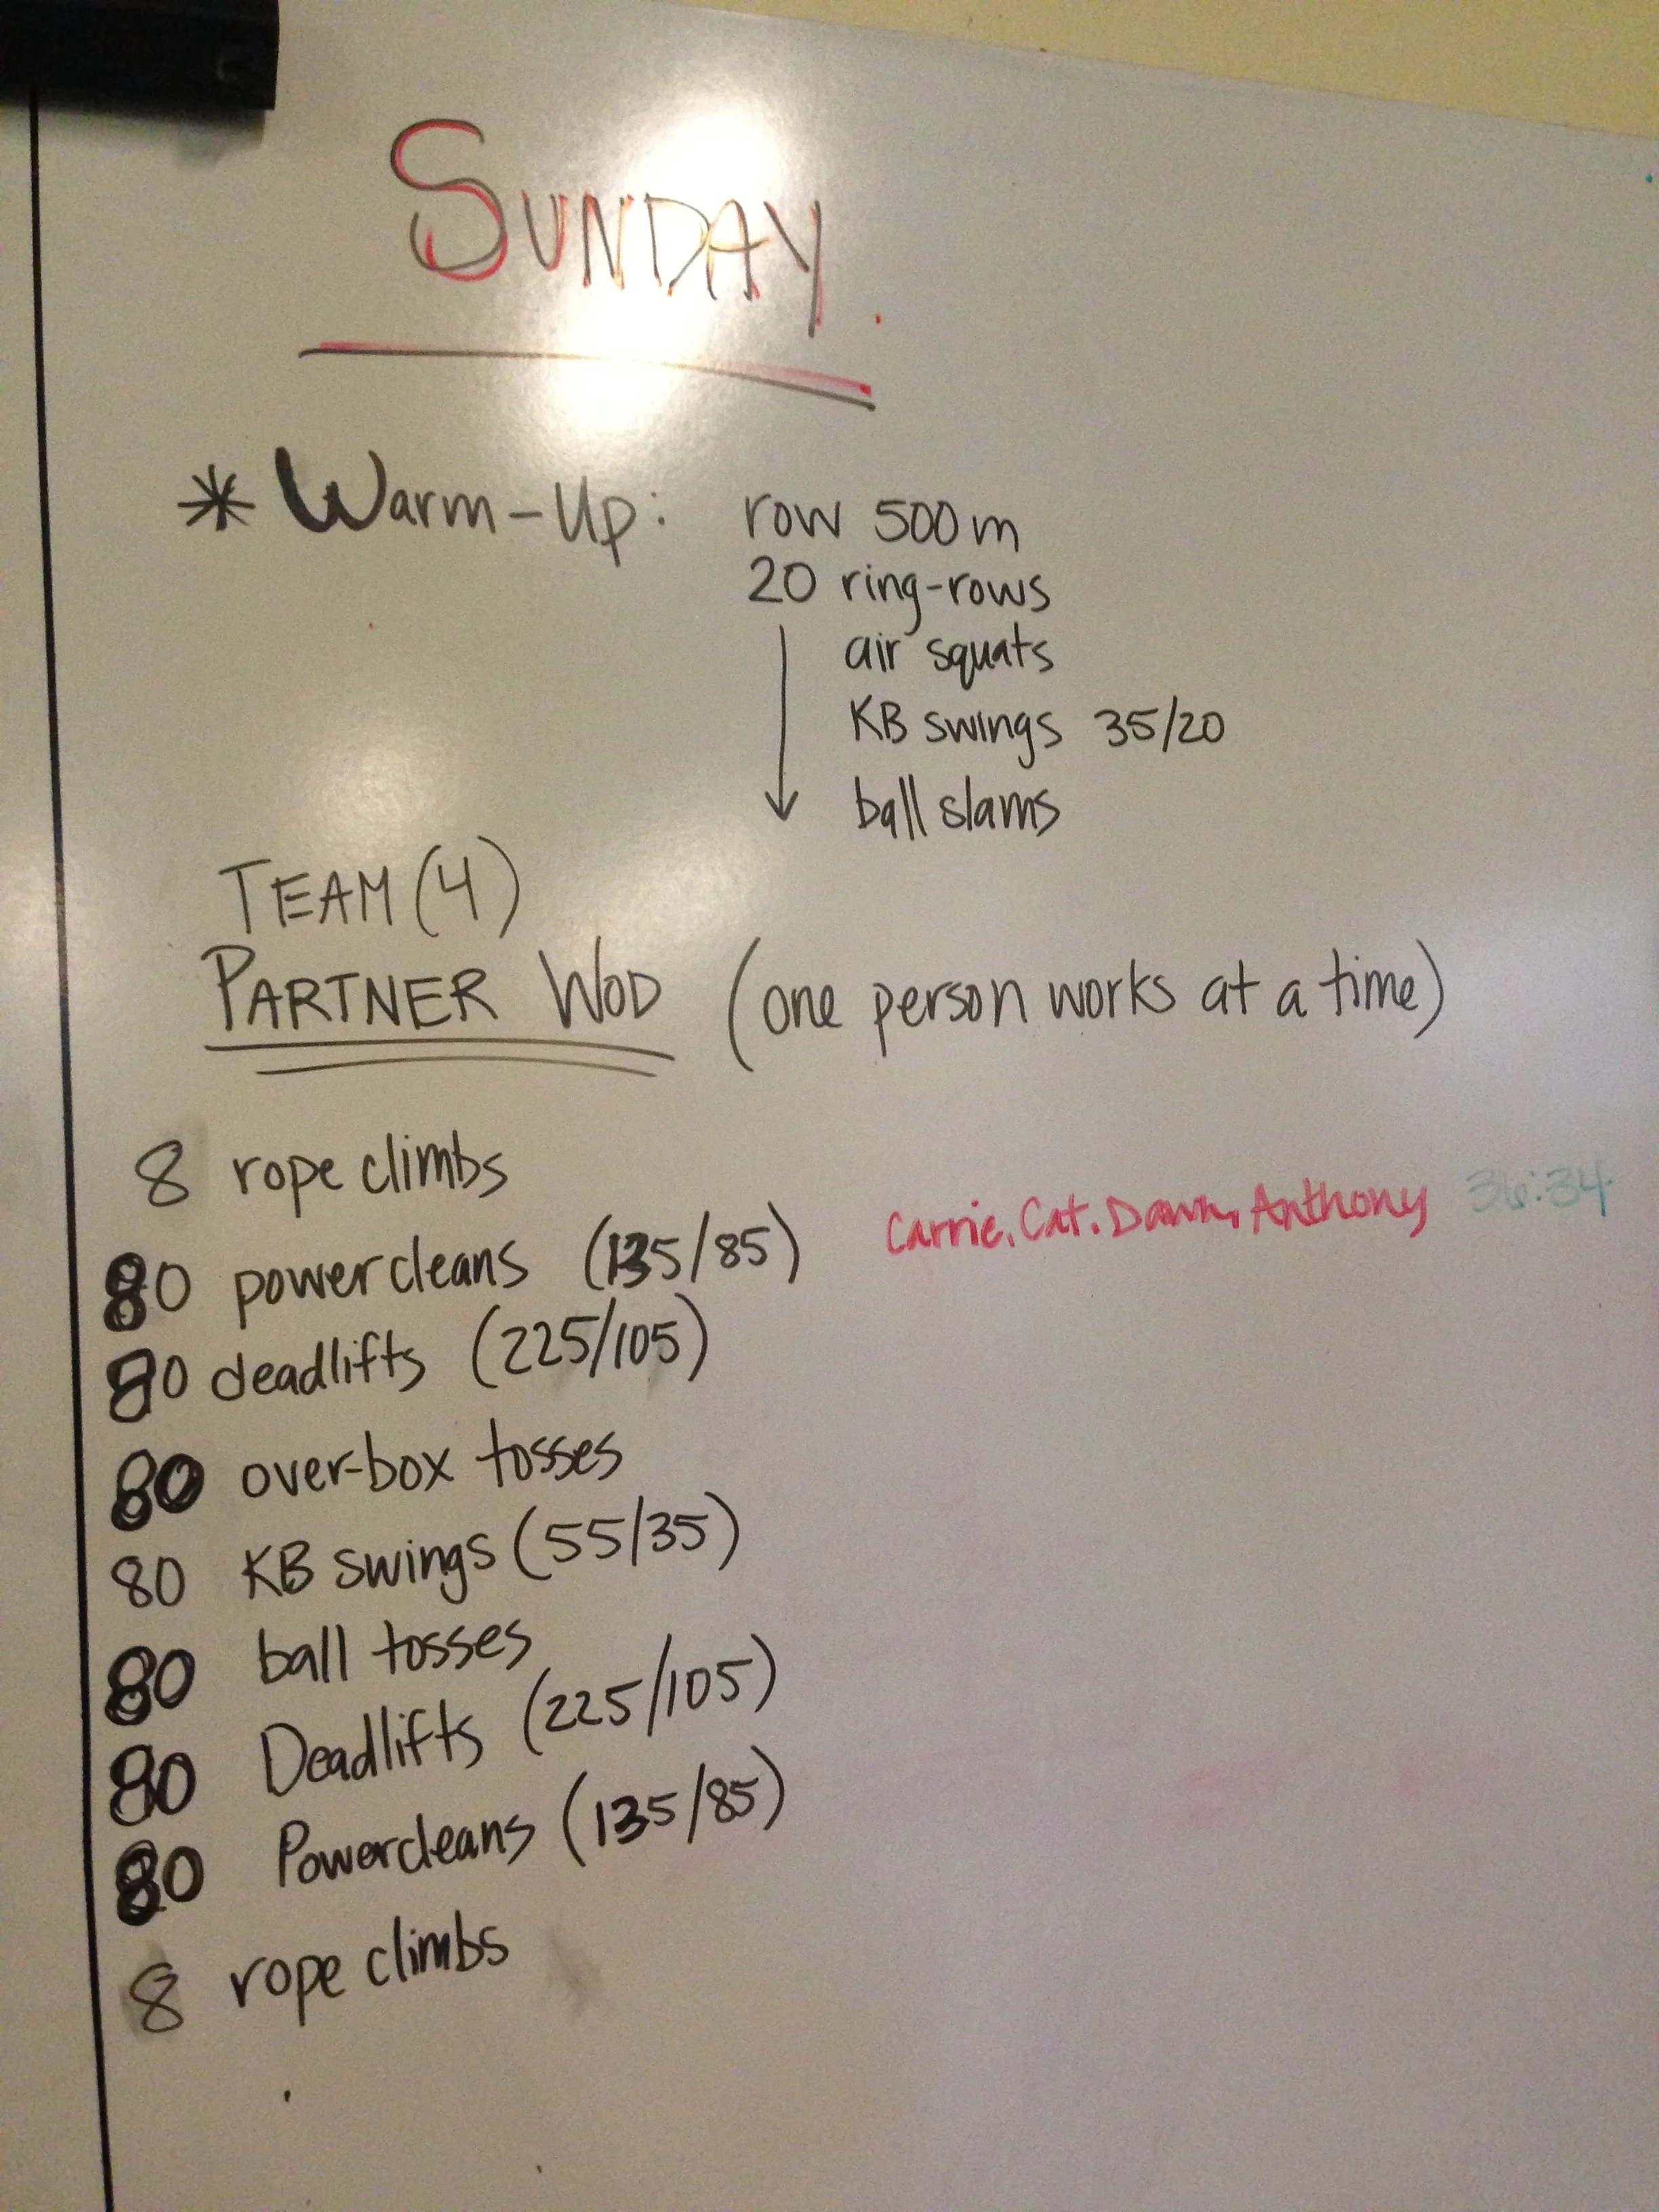 SUNDAY
* Warm-Up: row 500m
20 ring-rows
air squats
KB swings 35/20
ball slams
TEAM (4)
PARTNER WOD (one person works at a time)
8 rope climbs
Carrie. Cat. Dawn, Anthony 36:34
80 powercleans (135/85)
80 deadlifts (225/105)
80 over-box tosses
80 KB swings (55/35)
80 ball tosses
80 Deadlifts (225/105)
80 Powercleans (135/85)
8 rope climbs